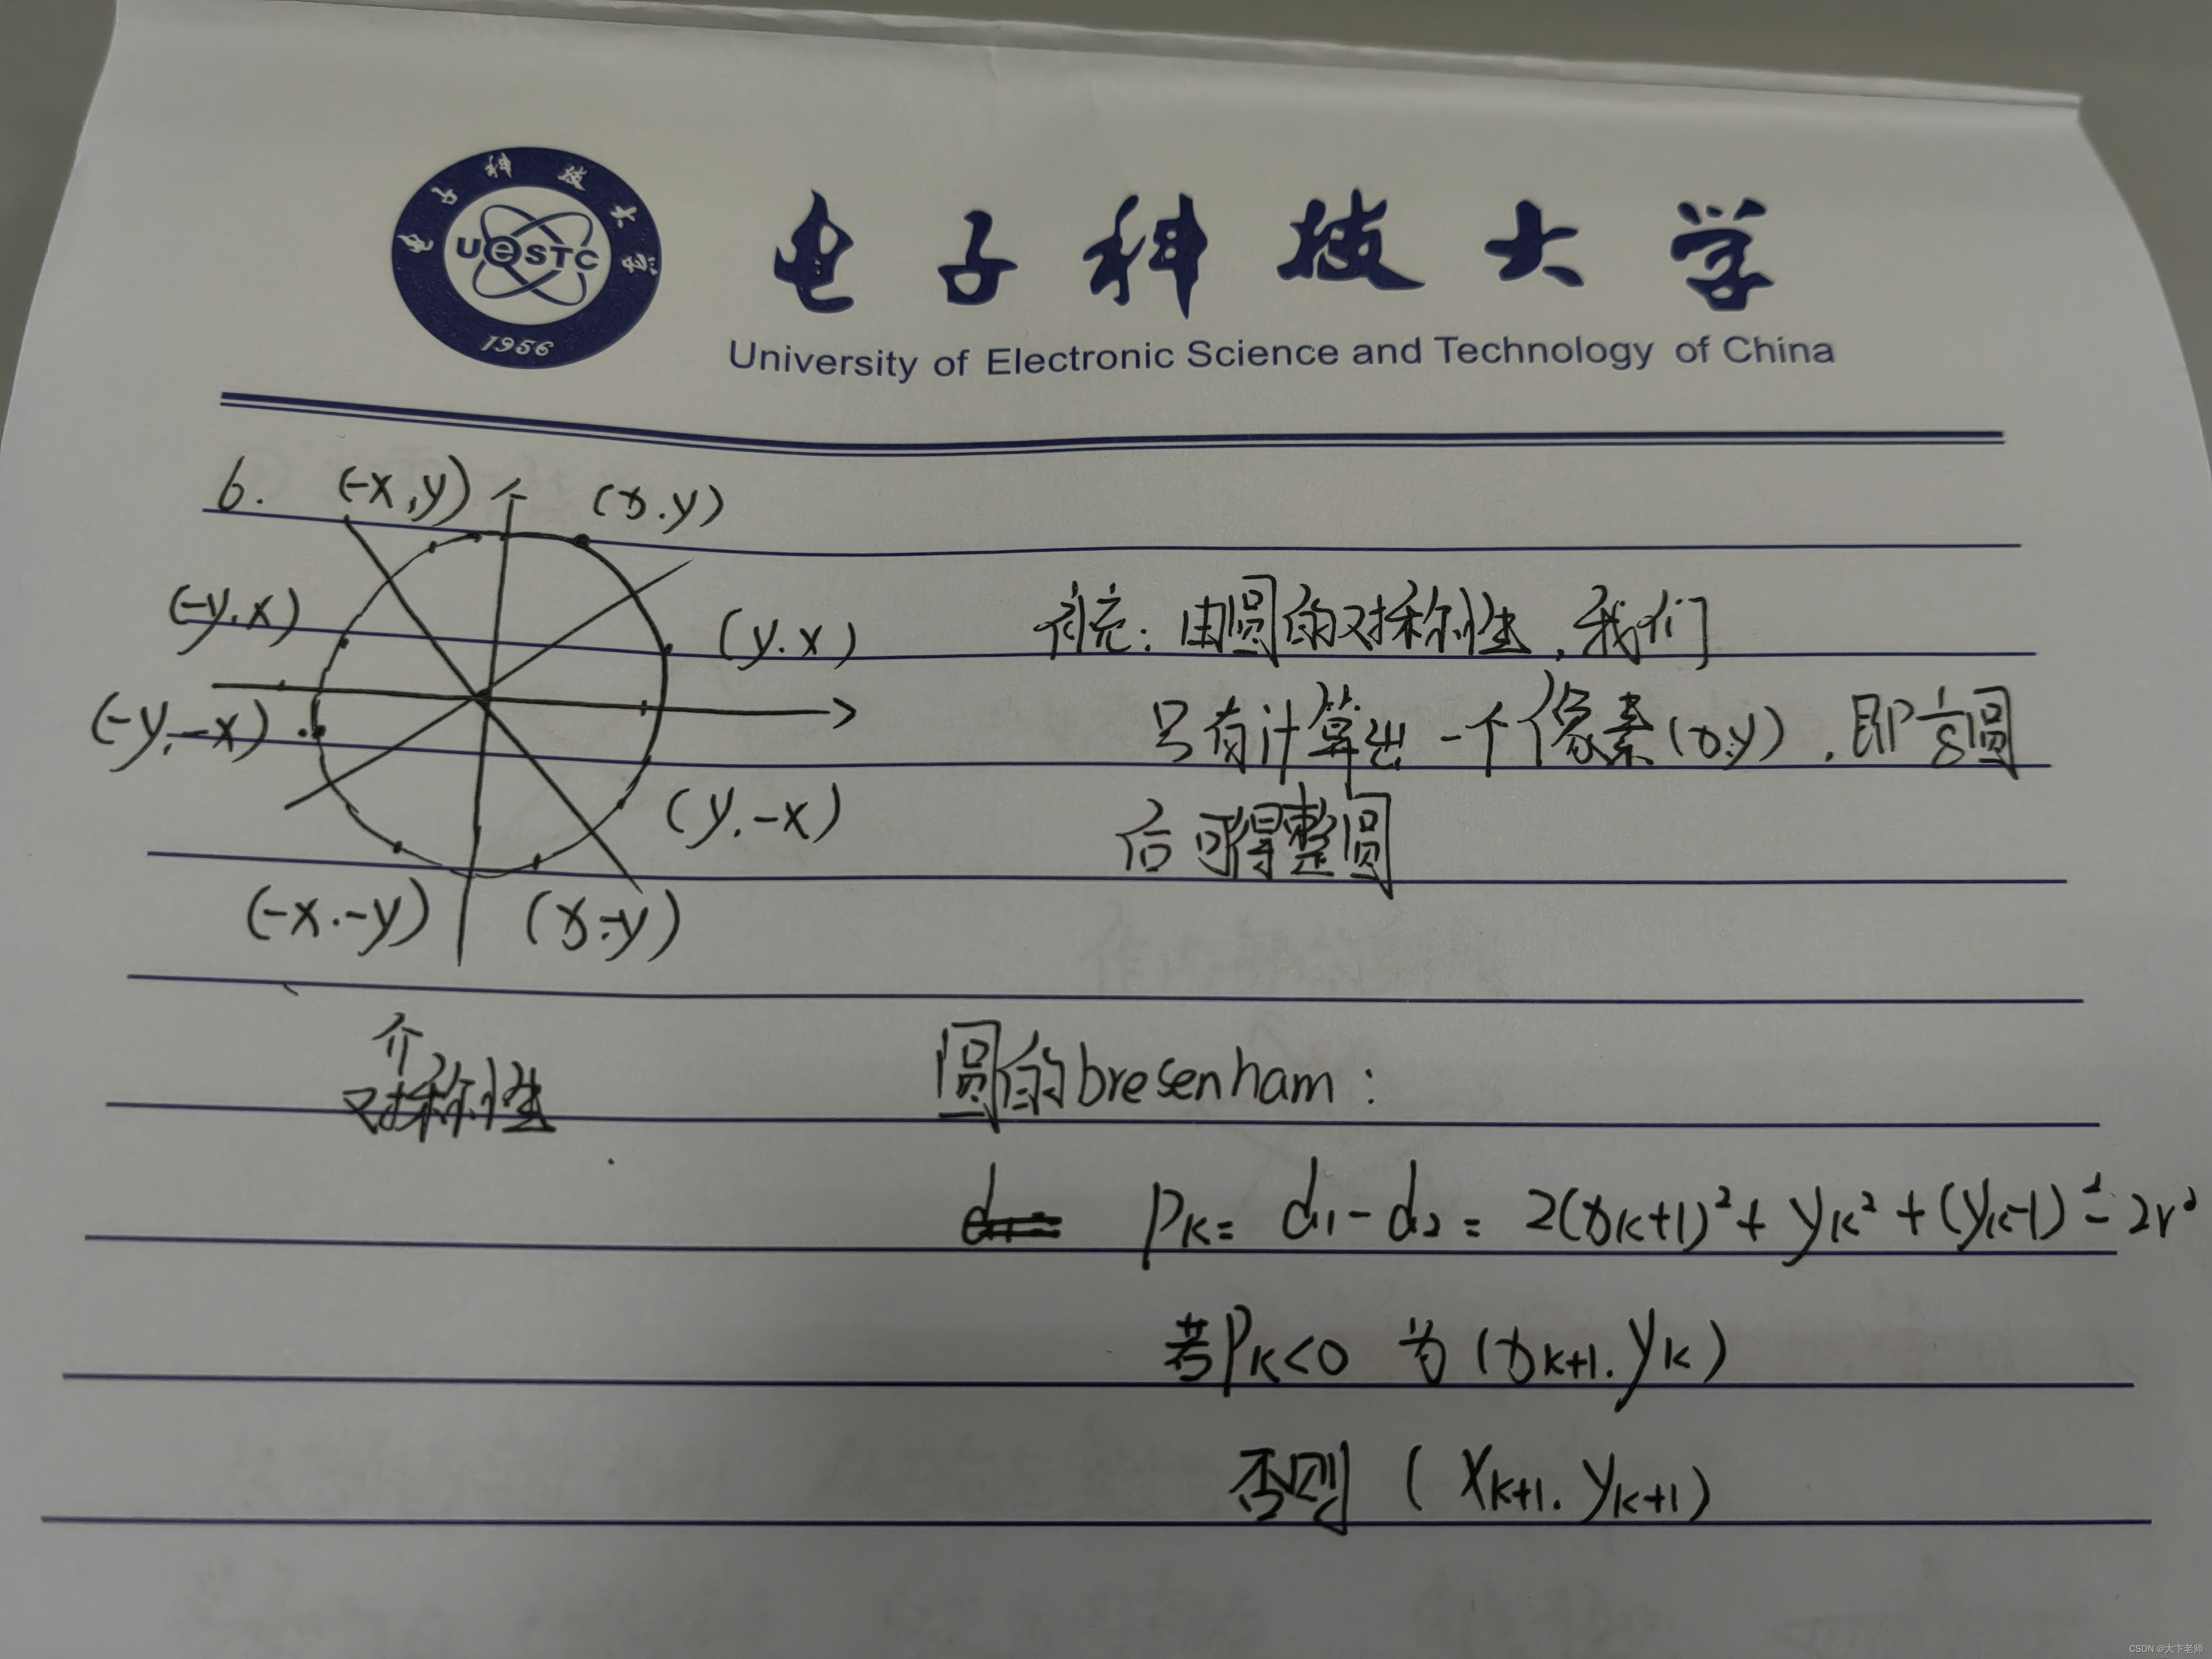 电子科技大学
UeSTC
1956
电子科技大学
University of Electronic Science and Technology of China
6.
(-x,y)
(x.y)
(-y.x)
(y.x)
补充：由圆的对称性，我们
(-y.-x)
只有计算出一个像素(x.y)，即1/8圆
(y.-x)
后可得整圆
(-x.-y)
(x.-y)
个
对称性
圆的bresenham：
Pk= d1-d2= 2(xk+1)²+ yk² +(yk-1)²-2r²
若Pk<0 为 (xk+1.yk)
否则 (xk+1.yk+1)
CSDN @大卞老师